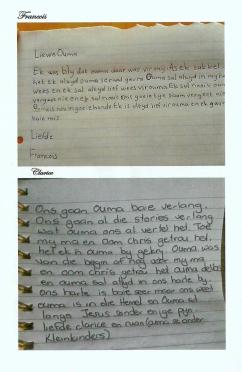 Francois
Liewe Ouma
Ek was bly dat ouma daar was vir my. As ek sak bel
het ek altyd ouma se Ouma sal altyd in my ha
wees en ek sal altyd lief wees vir ouma. Ek sal nooit oum
vergeet nie en ek sal nooit ons goeie tye saam vergeet nie
Ek is altyd lief vir ouma en ek gaan
baie mis.
Liefde
Francois
Clarice
Ons gaan Ouma baie verlang.
Ons gaan al die stories verlang
wat ouma ons al vertel het. Toe
my ma en oom Chris getrou het.
het ek n ouma by gekry. Ouma was
van die begin af nog my ma
en oom Chris getrou het ouma
en ouma sal altyd in ons harte bly.
ons harte is baie seer maar ons weet
ouma is in die Hemel en Ouma sal
langs Jesus sonder enige pyn
liefde clarice en ruan (ouma se ander
kleinkinders)